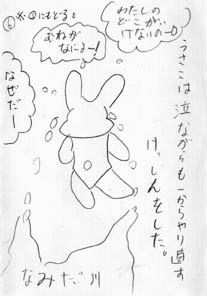 わたしの
どこがい
けないのーO
むねが
なにさー!
⑥※①にもどる
なぜだー
うさこは泣ながらも一からやり直す
けっしんをした。
なみだ川